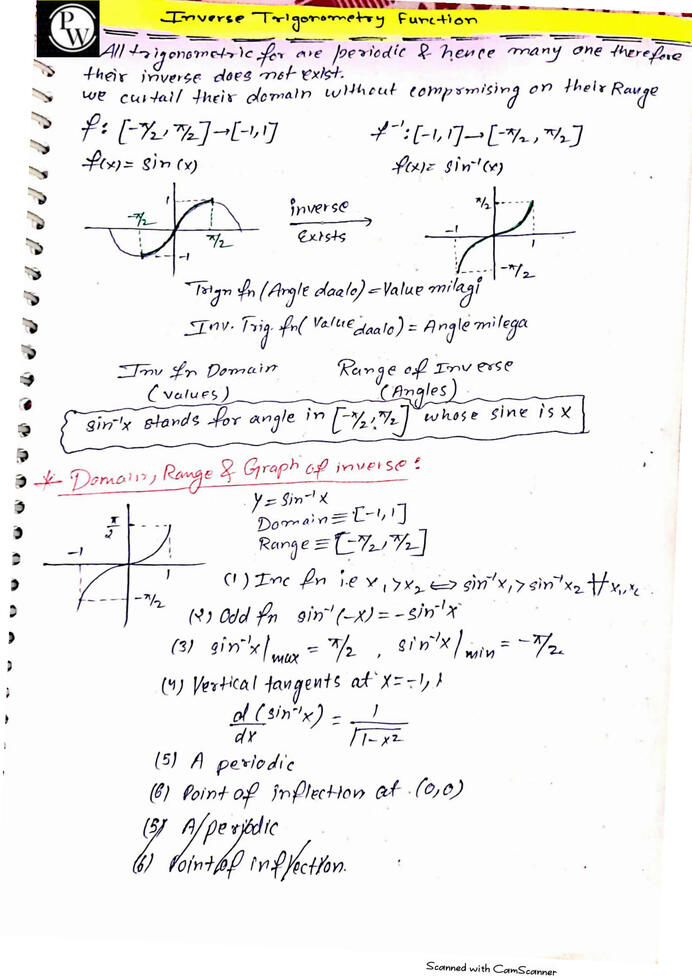 PW
Inverse Trigonometry Function
All trigonometric fn are periodic & hence many one therefore
their inverse does not exist.
we curtail their domain without comprmising on their Range
f: [-π/2, π/2]→[-1,1]
f⁻¹:[-1,1]→[-π/2, π/2]
f(x)= sin(x)
f(x)= sin⁻¹(x)
1
-π/2
π/2
-1
inverse
Exists
π/2
-1
1
-π/2
Trign fn (Angle daalo) = Value milagi
Inv. Trig. fn( Value daalo) = Angle milega
Inv fn Domain
(values)
Range of Inverse
(Angles)
sin⁻¹x stands for angle in [-π/2, π/2] whose sine is x
* Domain, Range & Graph of inverse :
π/2
-1
1
-π/2
y = sin⁻¹x
Domain ≡ [-1,1]
Range ≡ [-π/2, π/2]
(1) Inc fn i.e x₁>x₂ ⇔ sin⁻¹x₁>sin⁻¹x₂ ∀ x₁,x₂
(2) Odd fn sin⁻¹(-x) = -sin⁻¹x
(3) sin⁻¹x|max = π/2 , sin⁻¹x|min = -π/2
(4) Vertical tangents at x=-1,1
d(sin⁻¹x)/dx = 1/√1-x²
(5) A periodic
(6) Point of inflection at (0,0)
(5) A periodic
(6) Point of inflection.
Scanned with CamScanner